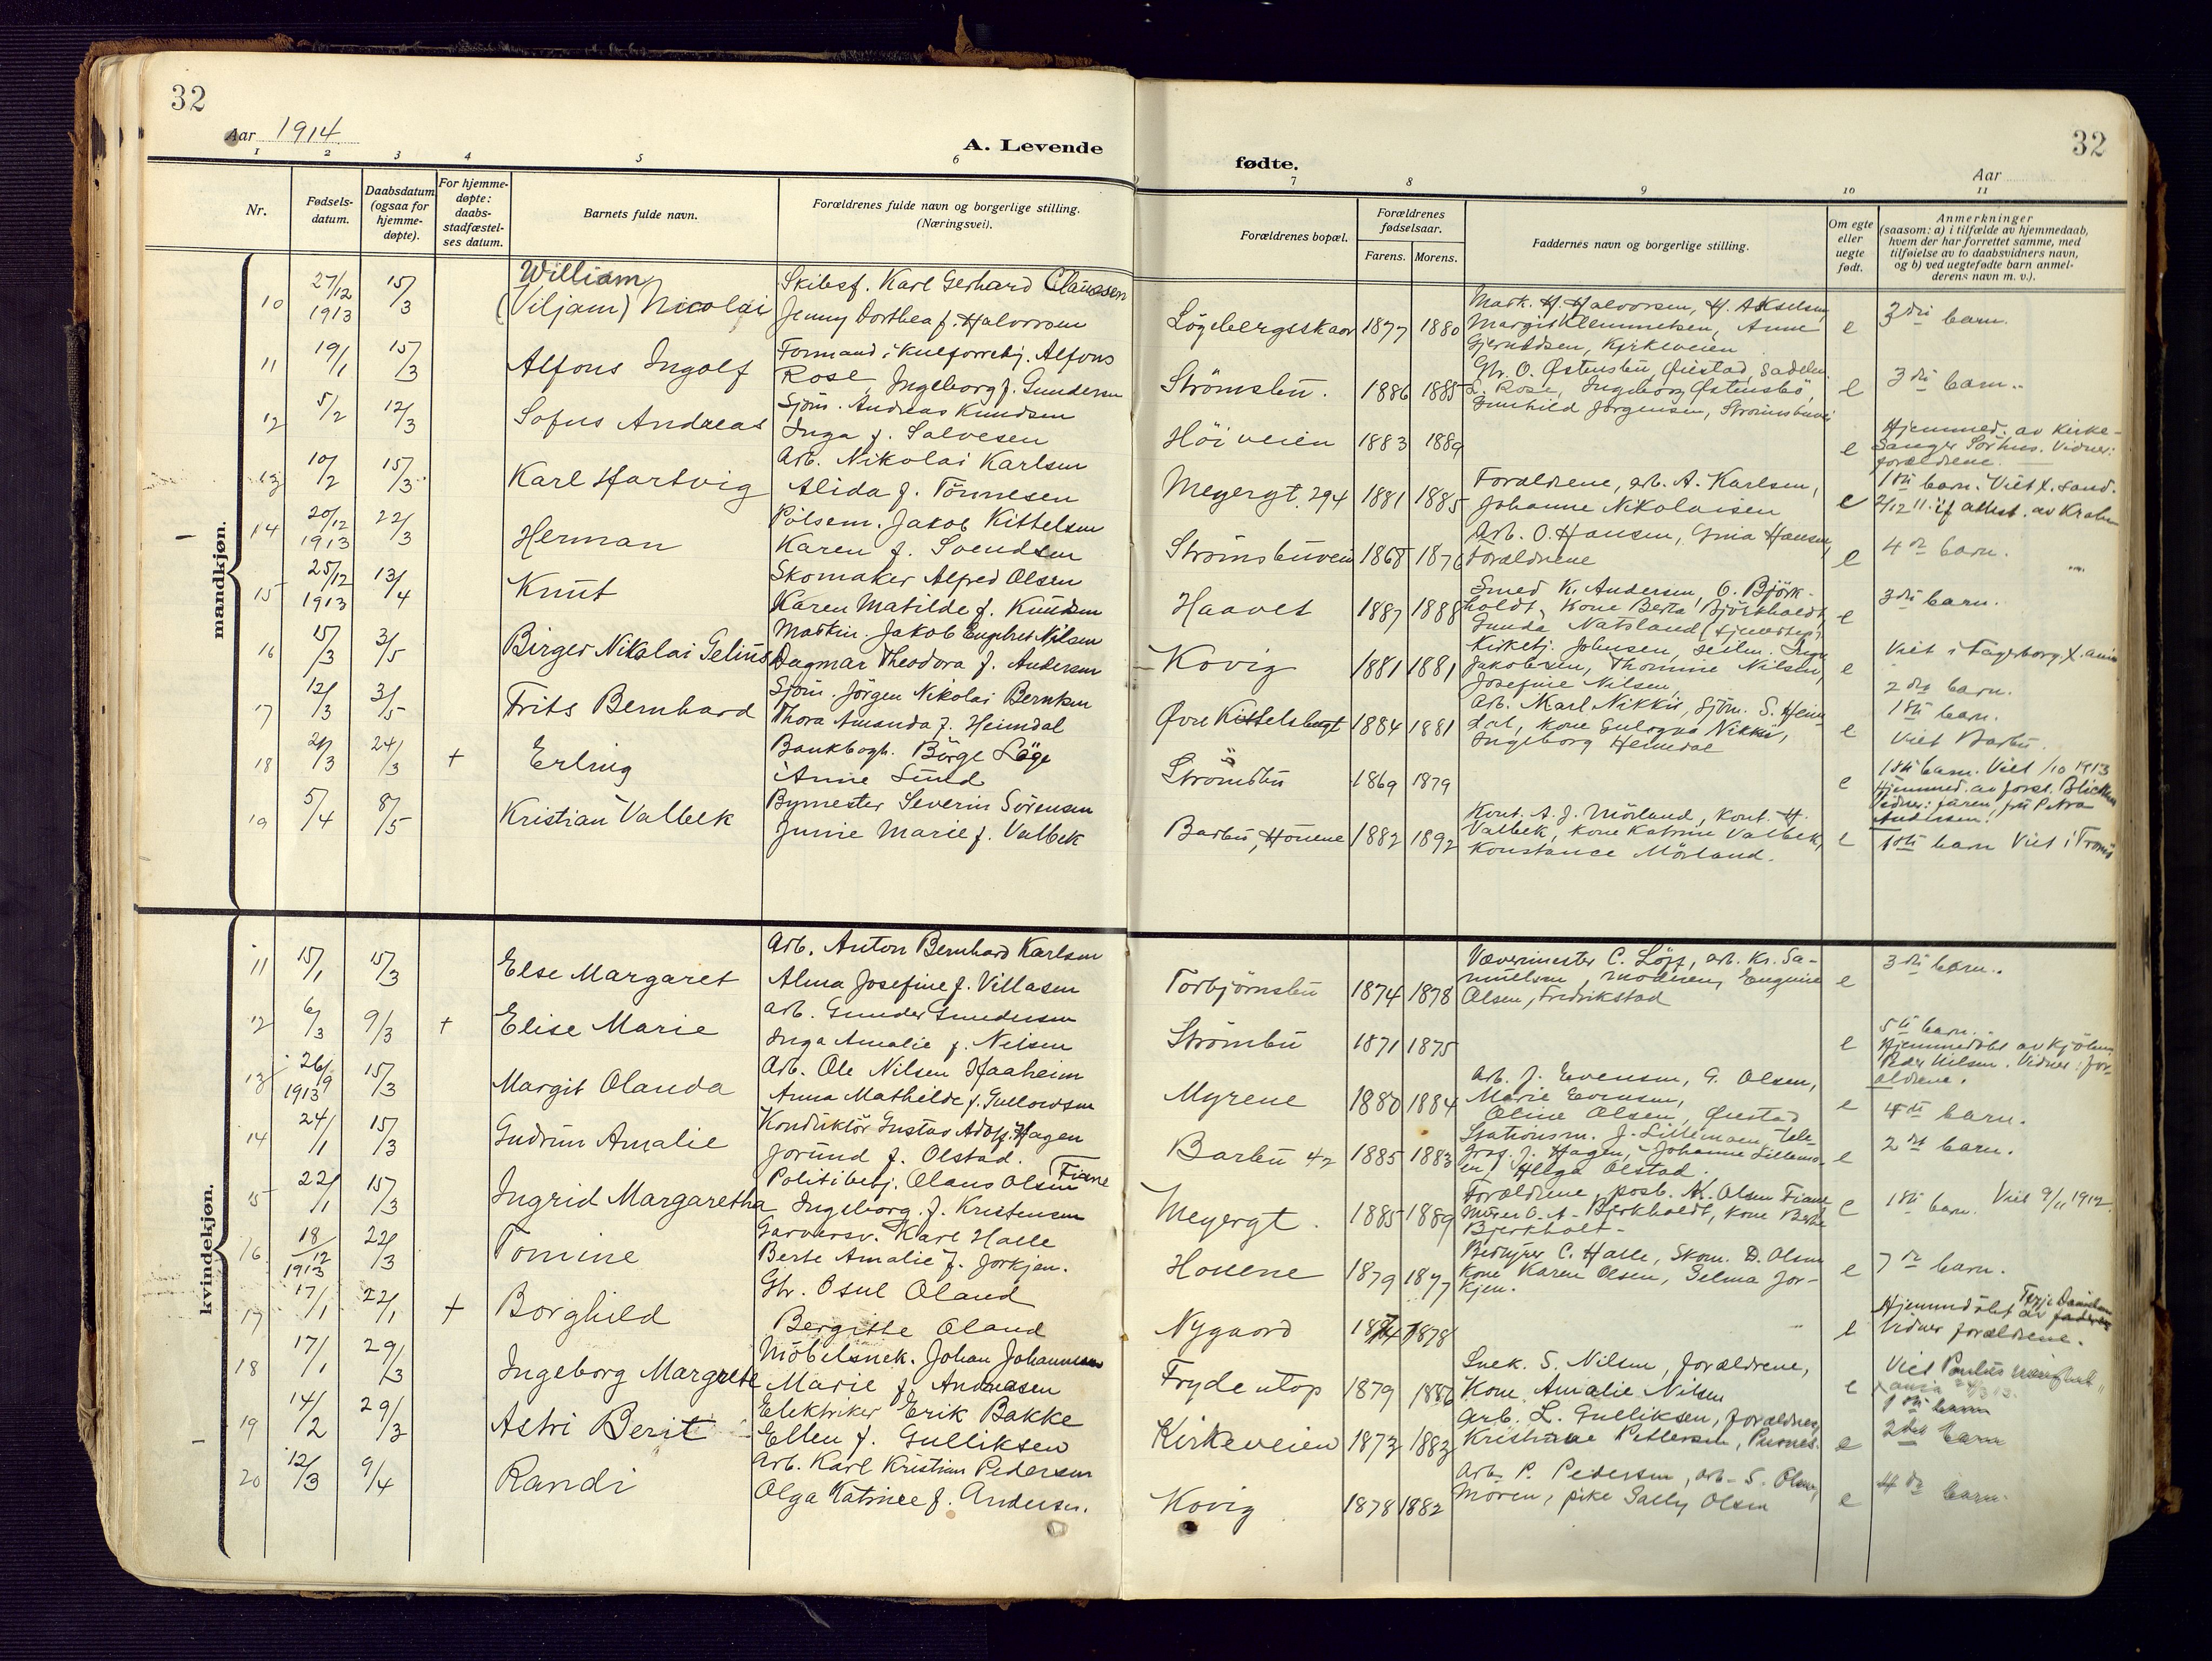 32
32
Aar 1914
A. Levende
fødte.
Aar
1 2 3 4 5 6 7 8 9 10 11
Nr.
Fødsels-
datum.
Daabsdatum
(ogsaa for
hjemme-
døpte).
For hjemme-
døpte:
daabs-
stadfæstel-
ses datum.
Barnets fulde navn.
Forældrenes fulde navn og borgerlige stilling.
(Næringsvei).
Forældrenes bopæl.
Forældrenes
fødselsaar.
Farens. Morens.
Faddernes navn og borgerlige stilling.
Om egte
eller
uegte
født.
Anmerkninger
(saasom: a) i tilfælde av hjemmedaab,
hvem der har forrettet samme, med
tilføielse av to daabsvidners navn,
og b) ved uegtefødte barn anmel-
derens navn m. v.).
mandkjøn.
10 27/12 1913 15/3
William
(Viljam) Nicolai
Skibsf. Karl Gerhard Claussen
Jenny Dorthea f. Halvorsen
Løgebergsskaar 1877 1880
Mask. H. Halvorsen, H. Akselsen,
Margit Klemmetsen, Anne
Gjeruldsen, Kjrkeveien
e 3die barn.
11 19/1 15/3
Alfons Ingolf
Formand i kulforretj. Alfons
Rose, Ingeborg f. Gundersen
Strömsbu. 1886 1885
Gbr. O. Østensbu, Øiestad, Sadelm.
L. Rose, Ingeborg Østensbö,
Gunhild Jørgensen, Strömsbuvei
e 3die barn.
12 5/2 12/3
Sofus Andreas
Sjöm. Andreas Knudsen
Inga f. Salvesen
Höiveien 1883 1889
e
Hjemmed. av Kirke-
sanger Sörhus. Vidner:
forældrene.
13 10/2 15/3
Karl Hartvig
Arb. Nikolai Karlsen
Alida f. Tönnesen
Meyergt. 294 1881 1885
Forældrene, arb. A. Karlsen,
Johanne Nikolaisen
e 1ste barn. Viet
14 20/12 1913 22/3
Herman
Pölsem. Jakob Kittelsen
Karen f. Svendsen
Strömsbuveien 1868 1876
Arb. O. Hansen, Gina Hansen,
Forældrene
e 4de barn.
15 25/12 1913 13/4
Knut
Skomaker Alfred Olsen
Karen Matilde f. Knudsen
Haavet 1887 1888
Smed K. Andersen, O. Björk-
holdt, Kone Berta Björkholdt,
Gunda Natsland
e 3die barn.
16 15/3 3/5
Birger Nikolai Gelius
Maskin. Jakob Engebret Nilsen
Dagmar Theodora f. Andersen
Kovig 1881 1881
Kirketj. Johnsen, seilm.
Jakobsen, Thomine Nilsen,
Josefine Nilsen,
e Viet i Fagerborg,
2det barn.
17 12/3 3/5
Frits Bernhard
Sjöm. Jörgen Nikolai Berntsen
Thora Amanda f. Heimdal
Øvre Kittelsbugt 1884 1881
Arb. Karl Nikki, Sjöm. S. Heim-
dal, Kone Gulogna Nikki,
Ingeborg Heimdal
e 1ste barn.
Viet Barbu.
18 21/3 24/3 +
Erling
Bankbogh. Börge Löge
Anne Lund
Strömsbu 1869 1879
e 1ste barn. Viet /10 1913
Hjemmed. av
Vidner: faren, frk Petra
Andersen.
19 5/4 8/5
Kristian Valbek
Bymester Severin Sörensen
Junie Marie f. Valbek
Barbu, Houene 1882 1892
Kont. A. J. Mörland, Kont. H.
Valbek, Kone Katrine Valbek,
Konstance Mörland.
e 1ste barn Viet i Tromö
kvindekjøn.
11 15/1 15/3
Else Margaret
Arb. Anton Bernhard Karlsen
Alma Josefine f. Villasen
Torbjörnsbu 1874 1878
Væverimester C. Löff, arb. Kr. Sa-
muelsen, moderen, Eugenie
Olsen, Fredrikstad
e 3die barn.
12 6/3 9/3 +
Elise Marie
Arb. Gunder Gundersen
Inga Amalie f. Nilsen
Strömbu 1871 1875
e 5te barn.
Hjemmedöbt av
Peder Nilsen. Vidner: for-
ældrene.
13 26/9 1913 15/3
Margit Olanda
Arb. Ole Nilsen Haaheim
Anna Mathilde f. Gullowsen
Myrene 1880 1884
Arb. J. Evensen, G. Olsen,
Marie Evensen,
Oline Olsen, Øiestad
e 4de barn.
14 24/1 15/3
Gudrun Amalie
Konduktör Gustav Adolf Hagen
Jorund f. Olstad.
Barbu 42 1885 1883
Stationsm. J. Lillemoen, Tele-
graf. J. Hagen, Johanne Lillemo-
en, Helga Olstad.
e 2det barn.
15 22/1 15/3
Ingrid Margaretha
Politibetj. Olaus Olsen Fiane
Ingeborg f. Kristensen
Meyergt. 1885 1889
Forældrene, postb. K. Olsen Fiane
Murer O. A. Bjerkholdt, Kone Berthe
Bjerkholt.
e 1ste barn. Viet 9/11 1912.
16 18/12 1913 22/3
Tomine
Garversv. Karl Halle
Berte Amalie f. Jorkjen.
Houene 1879 1877
Bestyrer C. Halle, Skom. D. Olsen
Kone Karen Olsen, Selma Jor-
kjen.
e 7de barn.
17 17/1 22/1 +
Borghild
Gbr. Osul Oland
Bergithe Oland
Nygaard 1874 1878
e Hjemmedöbt av Terje Danielsen
Vidner forældrene.
18 17/1 29/3
Ingeborg Margrete
Möbelsnek. Johan Johannessen
Marie f. Andreasen
Frydentop 1879 1886
Snek. S. Nilsen, forældrene,
Kone Amalie Nilsen
e Viet Paulus menighet
1ste barn
19 14/2 29/3
Astri Berit
Elektriker Erik Bakke
Ellen f. Gulliksen
Kirkeveien 1873 1883
Arb. L. Gulliksen, forældrene,
Kristiane Pettersen, Pusnes.
e 2det barn
20 12/3 9/4
Randi
Arb. Karl Kristian Pedersen
Olga Katrine f. Andersen.
Kovig 1878 1882
Arb. P. Pedersen, arb. S. Olsen,
Moren, pike Sally Olsen
e 4de barn.